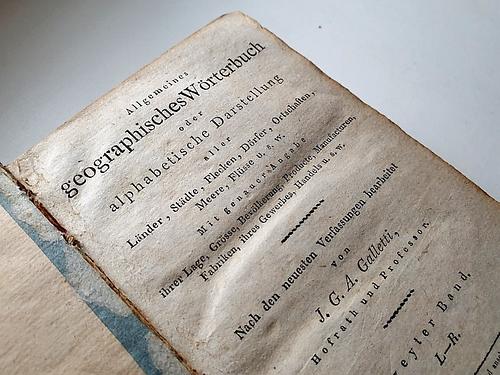 Allgemeines
geographisches Wörterbuch
oder
alphabetische Darstellung
aller
Länder, Städte, Flecken, Dörfer, Ortschaften,
Meere, Flüsse u. s. w.
Mit genauer Angabe
ihrer Lage, Grösse, Bevölkerung, Producte, Manufacturen,
Fabriken, ihres Gewerbes, Handels u. s. w.
Nach den neuesten Verfassungen bearbeitet
von
J. G. A. Galletti,
Hofrath und Professor.
eyter Band.
L–R.